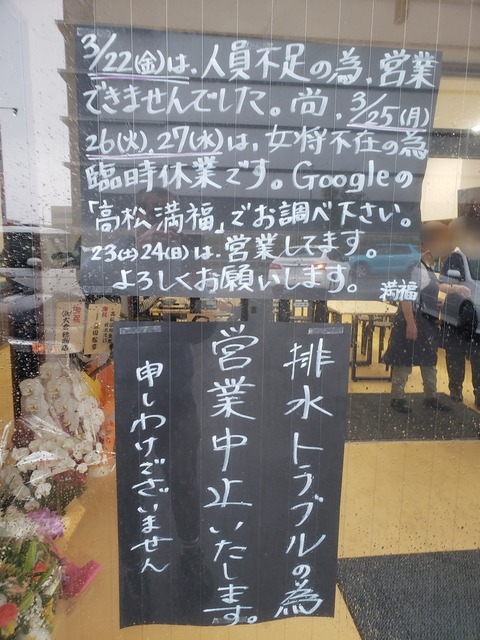 3/22(金)は、人員不足の為、営業
できませんでした。尚、3/25(月)
26(火)、27(水)は、女将不在の為
臨時休業です。Googleの
「高松満福」でお調べ下さい。
23(土)24(日)は、営業してます。
よろしくお願いします。 満福
排水トラブルの為
営業中止いたします。
申しわけございません